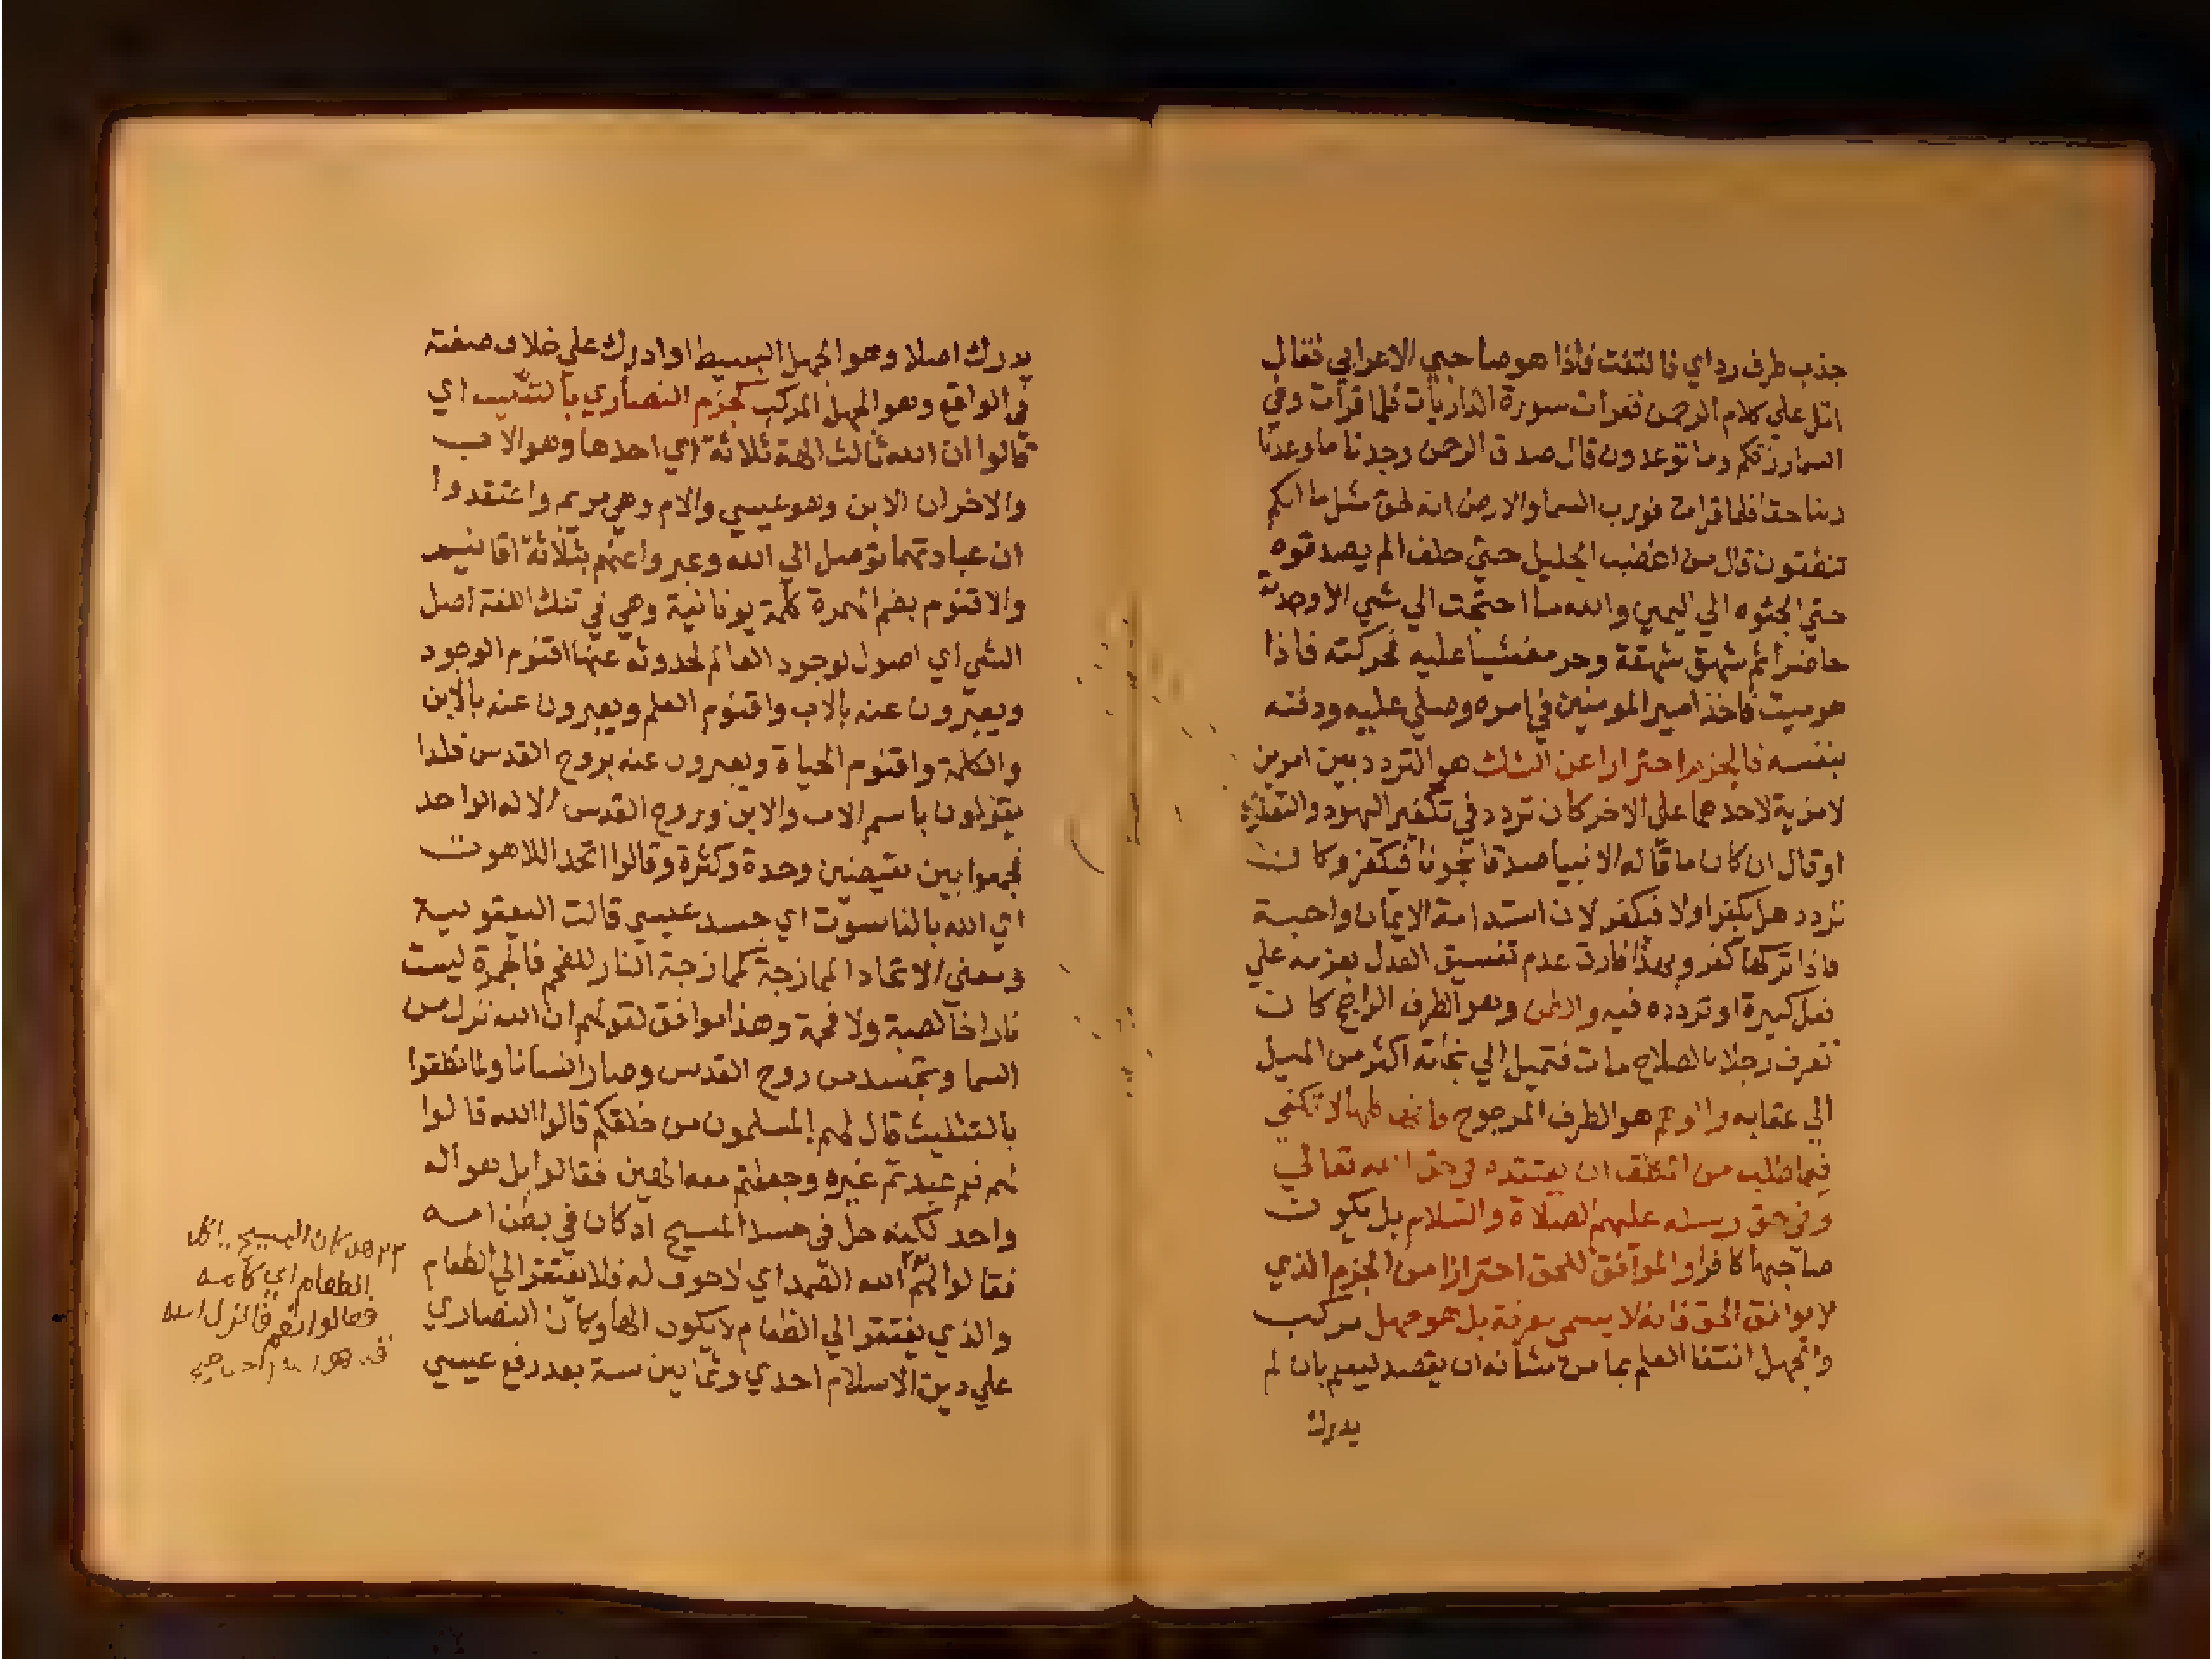 جذب طرف رداي فالتفت فاذا هو صاحبي الاعرابي فقال
اتل علي كلام الرحمن فقرات سورة الذاريات فلما قرات وفي
السما رزقكم وما توعدون قال صدق الرحمن وجدنا ما وعدنا
ربنا حقا فلما قرات فورب السما والارض انه لحق مثل ما انكم
تنطقون قال من اغضب الجليل حتي حلف الم يصدقوه
حتي الجئوه الي اليمين والله ما احتجت الي شي الا وجدته
حاضرا ثم شهق شهقة وخر مغشيا عليه فحركته فاذا
هو ميت فاخذ امير المومنين في امره وصلي عليه ودفنه
بنفسه فالجزم احترازا عن الشك هو التردد بين امرين
لا مزية لاحدهما علي الاخر كان تردد في تكفير اليهود والنصاري
او قال ان كان ما قاله الانبيا صدقا نجونا فيكفر وكان
تردد هل يكفر اولا فيكفر لان استدامة الايمان واجبة
فاذا تركها كفر وبهذا فارق عدم تفسيق العدل بعزمه علي
فعل كبيرة او تردده فيه والظن وهو الطرف الراجح كان
تعرف رجلا بالصلاح مات فتميل الي نجاته اكثر من الميل
الي عقابه والوهم هو الطرف المرجوح فانها كلها لا تكفي
فيما طلب من المكلف ان يعتقده في حق الله تعالي
وفي حق رسله عليهم الصلاة والسلام بل يكون
صاحبها كافرا والموافق للحق احترازا من الجزم الذي
لا يوافق الحق فانه لا يسمي معرفة بل هو جهل مركب
والجهل انتفا العلم بما من شانه ان يقصد ليعلم بان لم
يدرك
يدرك اصلا وهو الجهل البسيط او ادرك علي خلاف صفته
في الواقع وهو الجهل المركب كجزم النصاري بالتثليث اي
قالوا ان الله ثالث الهة ثلاثة اي احدها وهو الاب
والاخران الابن وهو عيسي والام وهي مريم واعتقدوا
ان عبادتهما توصل الي الله وعبروا عنهم بثلاثة اقانيم
والاقنوم بضم الهمزة كلمة يونانية وهي في تلك اللغة اصل
الشي اي اصول لوجود العالم لحدوثه عنها اقنوم الوجود
ويعبرون عنه بالاب واقنوم العلم ويعبرون عنه بالابن
والكلمة واقنوم الحياة ويعبرون عنه بروح القدس فلذا
يقولون باسم الاب والابن وروح القدس الاله الواحد
فجمعوا بين نقيضين وحدة وكثرة وقالوا اتحد اللاهوت
اي الله بالناسوت اي جسد عيسي قالت اليعقوبية
ومعني الاتحاد الممازجة كممازجة النار للفحم فالجمرة ليست
نارا خالصة ولا فحمة وهذا موافق لقولهم ان الله نزل من
السما وتجسد من روح القدس وصار انسانا ولما نطقوا
بالتثليث قال لهم المسلمون من خلقكم قالوا الله قالوا
لهم فلم عبدتم غيره وجعلتم معه الهين فقالوا بل هو اله
واحد لكنه حل في جسد المسيح اذ كان في بطن امه
فقالوا لهم الله الصمد اي لا جوف له فلا يفتقر الي الطعام
والذي يفتقر الي الطعام لا يكون الها وكان النصاري
علي دين الاسلام احدي وثمانين سنة بعد رفع عيسي
هل كان المسيح ياكل
الطعام اي كامه
فقالوا نعم فانزل الله
قل هو الله احد